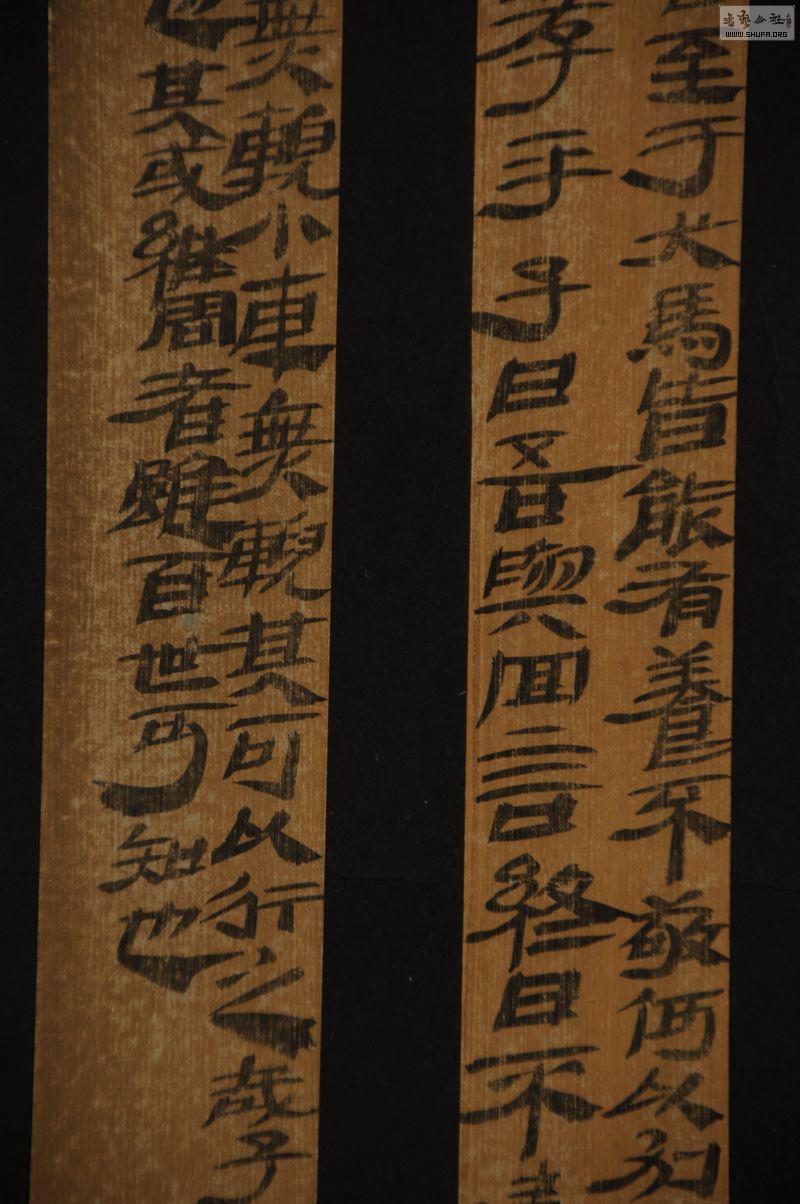 至于犬馬皆能有養不敬何以別
孝乎子曰吾與回言終日不
無輗小車無軏其可以行之哉子
也其或繼周者雖百世可知也
书艺公社
WWW.SHUFA.ORG